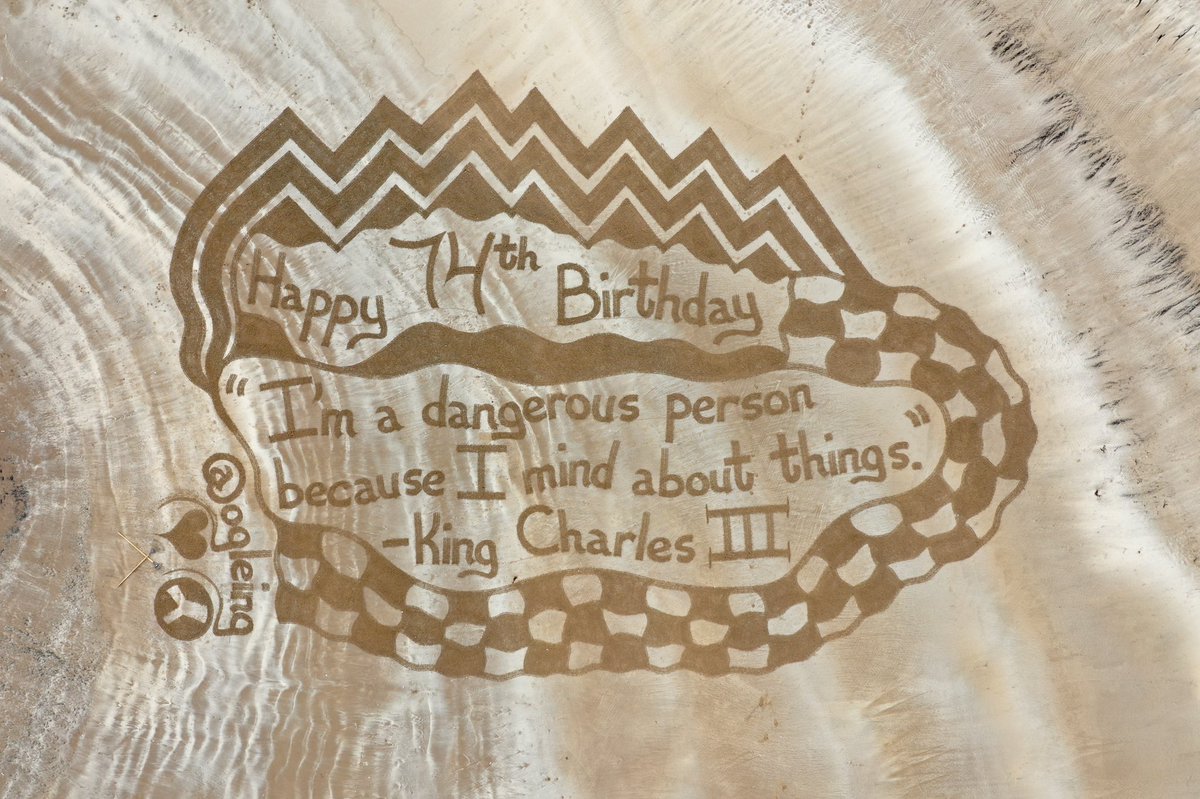 Happy 74th Birthday
"I'm a dangerous person
because I mind about things."
-King Charles III
@ogleing